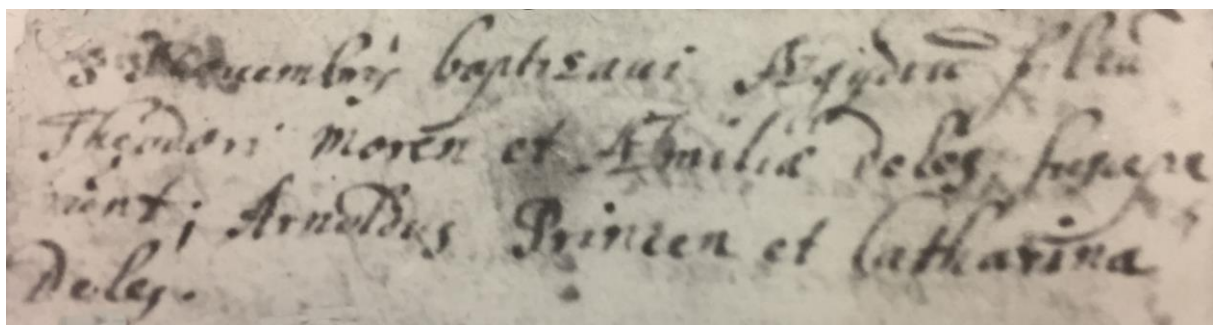 3 Novembris baptisavi Ægydiũ filiũ
Theodori Moren et Æmiliæ Deles, suscepe
runt; Arnoldus Princen et Catharina
Deles.